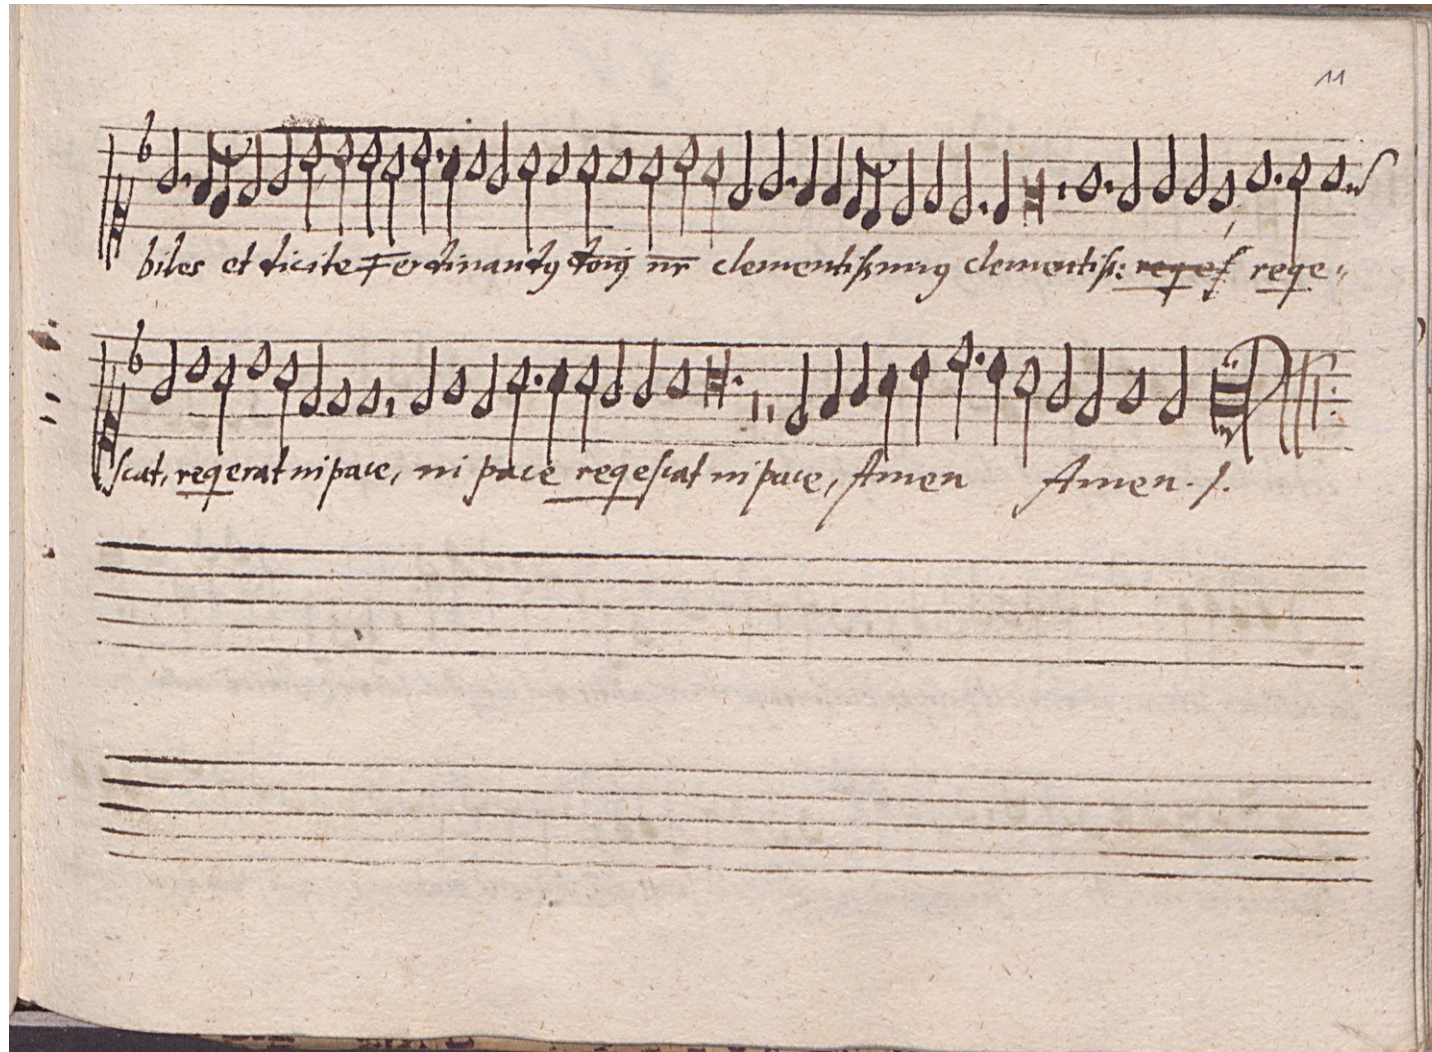 11
biles et dicite Ferdinandꝰ doῡs nr clementissimꝰ clementiss: reqes reqe-
scat, reqerat in pace, in pace reqescat in pace, Amen Amen. /.